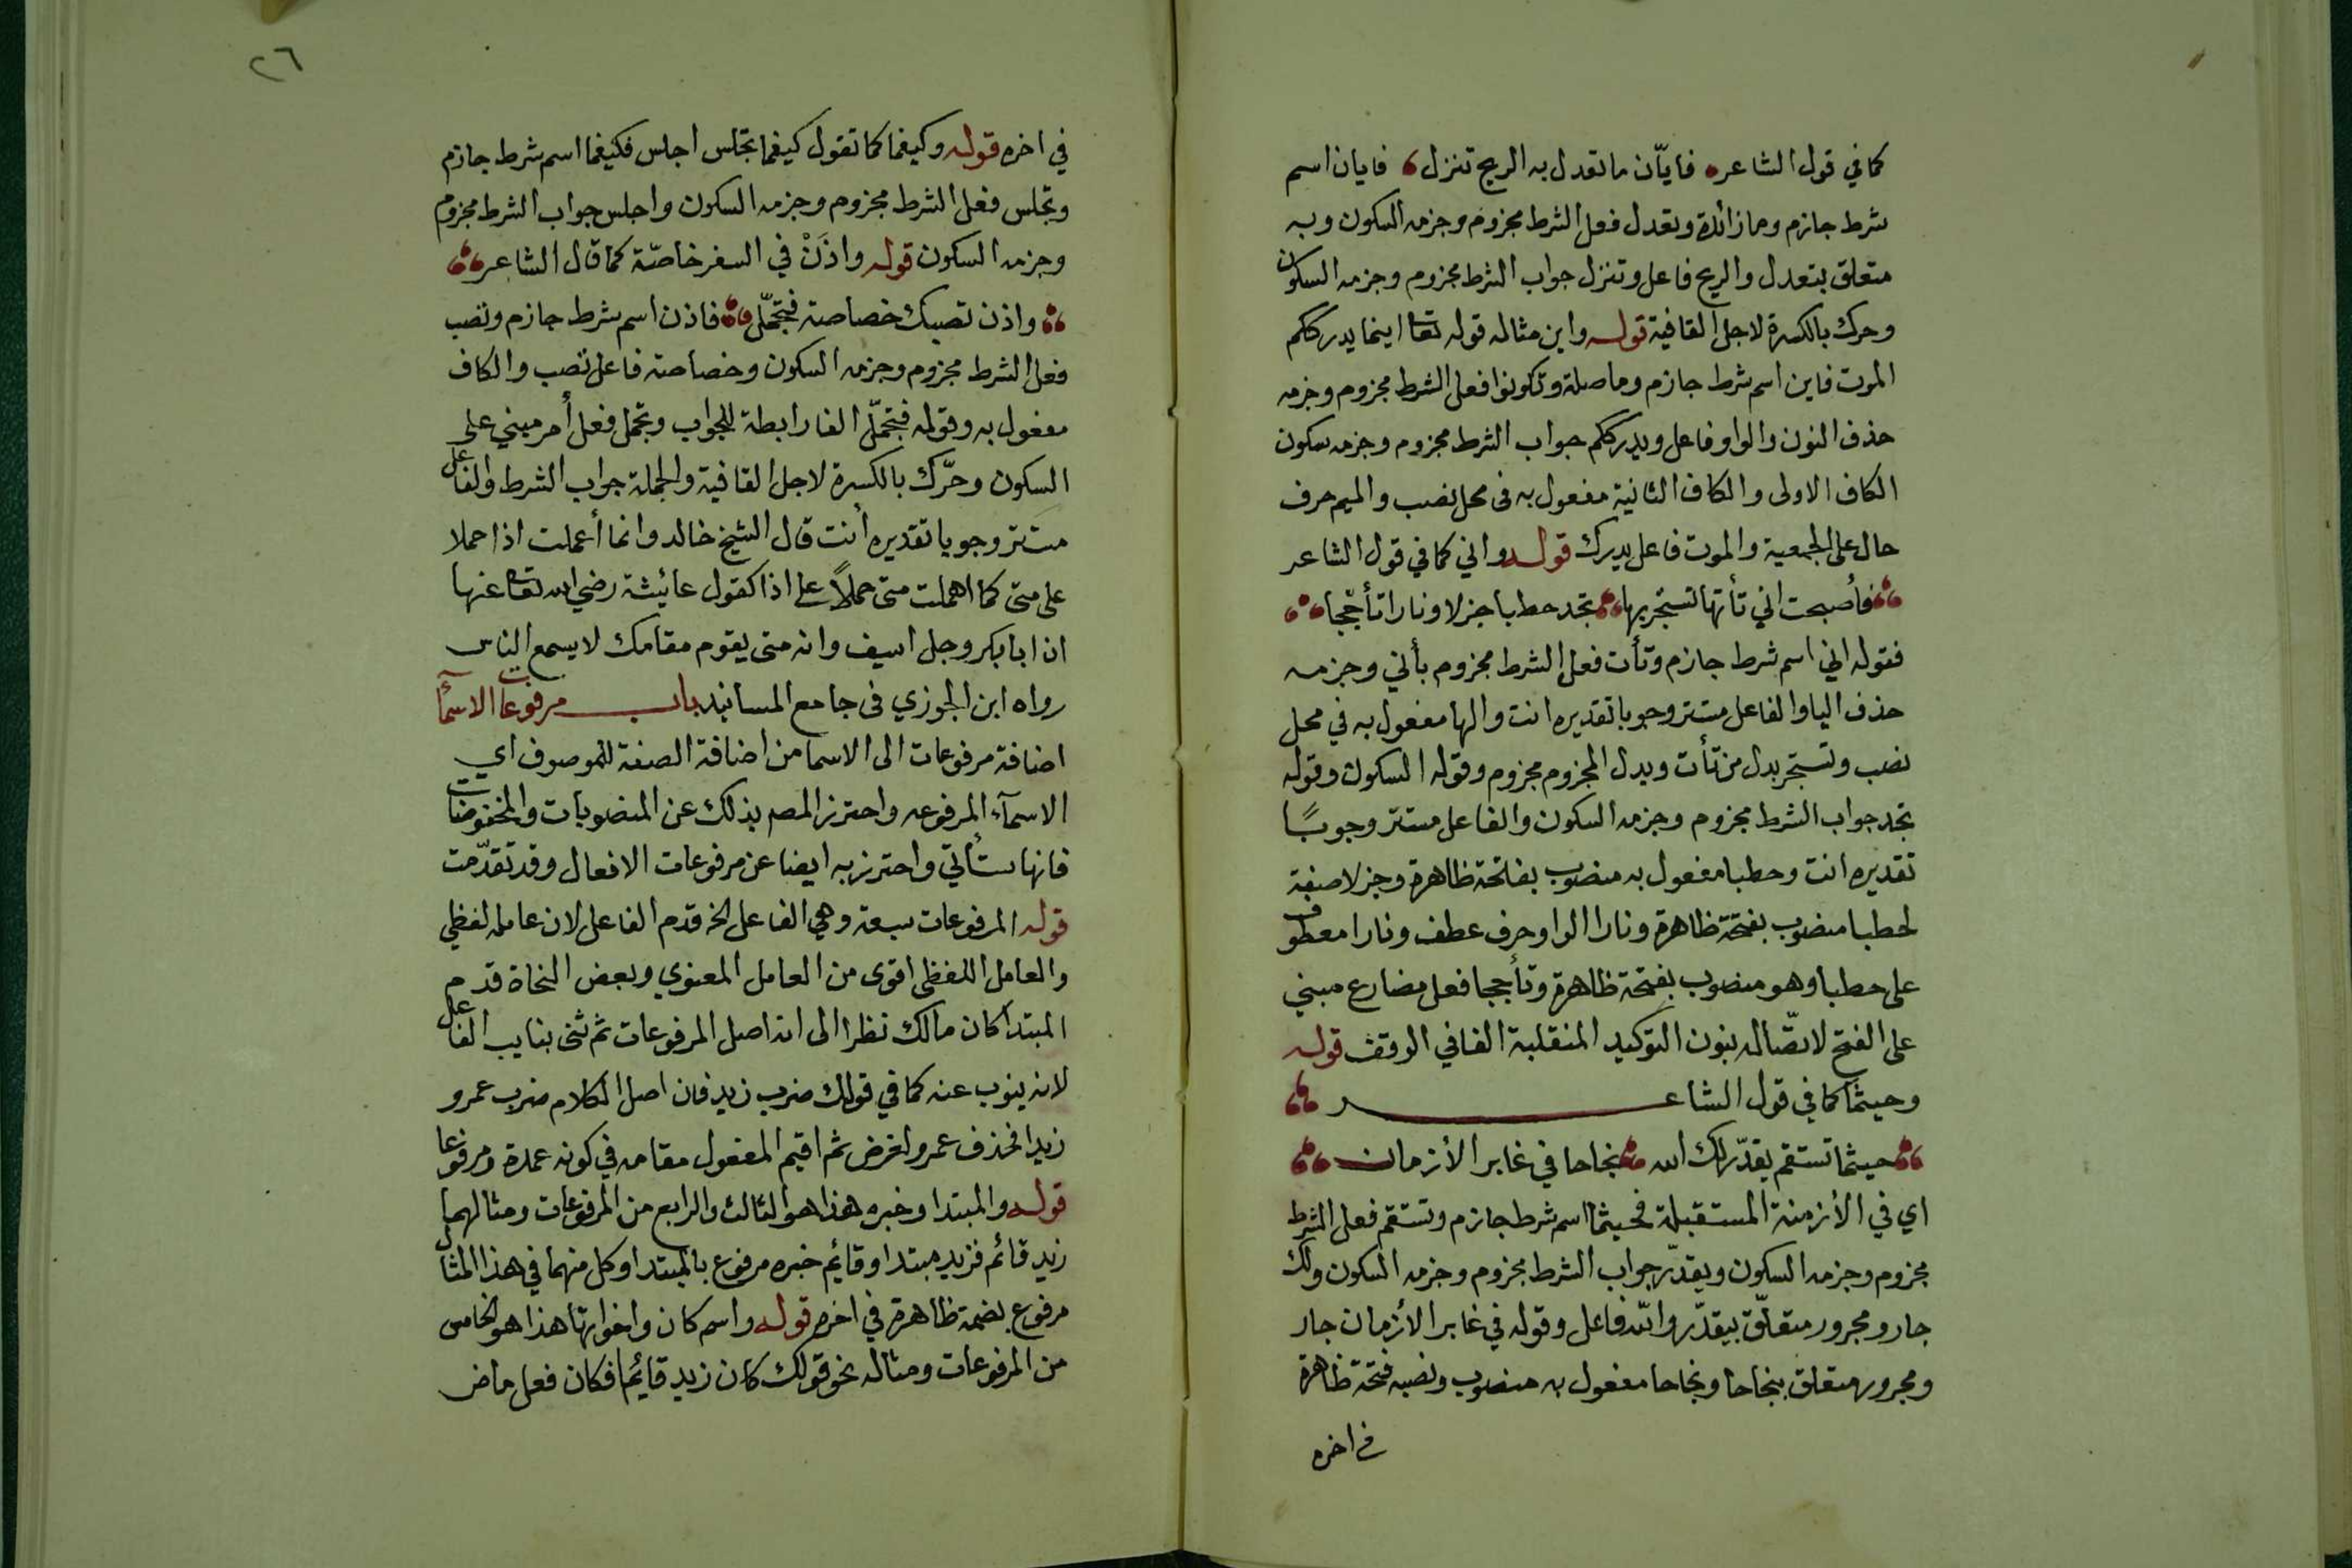 كما في قول الشاعر فايّان ما تعدل به الريح تنزل فايان اسم
شرط جازم وما زائدة وتعدل فعل الشرط مجزوم وجزمه السكون وبه
متعلق بتعدل والريح فاعل وتنزل جواب الشرط مجزوم وجزمه السكون
وحرك بالكسرة لاجل القافية قوله واين مثاله قوله تعا اينما يدرككم
الموت فاين اسم شرط جازم وما صلة وتكونوا فعل الشرط مجزوم وجزمه
حذف النون والواو فاعل ويدرككم جواب الشرط مجزوم وجزمه سكون
الكاف الاولى والكاف الثانية مفعول به فى محل نصب والميم حرف
دال على الجمعية والموت فاعل يدرك قوله واني كما في قول الشاعر
فأصبحت اني تأتها تستجر بها تجد حطبا جزلا ونارا تأججا
فقوله اني اسم شرط جازم وتأت فعل الشرط مجزوم بأني وجزمه
حذف اليا والفاعل مستتر وجوبا تقديره انت والها مفعول به في محل
نصب وتستجر بدل من تأت وبدل المجزوم مجزوم وقوله السكون وقوله
تجد جواب الشرط مجزوم وجزمه السكون والفاعل مستتر وجوبًا
تقديره انت وحطبا مفعول به منصوب بفاتحة ظاهرة وجزلا صفة
لحطبا منصوب بفتحة ظاهرة ونارا الواو حرف عطف ونارا معطوف
على حطبا وهو منصوب بفتحة ظاهرة وتأججا فعل مضارع مبني
على الفتح لاتصّاله بنون التوكيد المنقلبة الفا في الوقف قوله
وحيثما كما في قول الشاعر
حيثما تستقم يقدّر لك الله نجاحا في غابر الأزمان
اي في الأزمنة المستقبلة فحيثما اسم شرط جازم وتستقم فعل الشرط
مجزوم وجزمه السكون ويقدّر جواب الشرط مجزوم وجزمه السكون ولك
جار ومجرور متعلّق بيقدّر والله فاعل وقوله في غابر الأزمان جار
ومجرور متعلق بنجاحا ونجاحا مفعول به منصوب ونصبه فتحة ظاهرة
في اخره
٢٦
في اخره قوله وكيفما كما تقول كيفما تجلس اجلس فكيفما اسم شرط جازم
وتجلس فعل الشرط مجزوم وجزمه السكون واجلس جواب الشرط مجزوم
وجزمه السكون قوله واذَنْ في السفر خاصّة كما قال الشاعر
واذن تصبك خصاصة فتجمّل فاذن اسم شرط جازم وتصب
فعل الشرط مجزوم وجزمه السكون وخصاصة فاعل تصب والكاف
مفعول به وقوله فتجمّل الفا رابطة للجواب وتجمل فعل أمر مبني على
السكون وحرّك بالكسرة لاجل القافية والجملة جواب الشرط والفاعل
مستتر وجوبا تقديره أنت قال الشيخ خالد وانما أعملت اذا حملا
على متى كما اهملت متى حملاً على اذا كقول عائيشة رضي الله تعا عنها
ان ابا بكر وجل اسيف وانه متى يقوم مقامك لا يسمع الناس
رواه ابن الجوزي فى جامع المسانيد باب مرفوعات الاسمآ
اضافة مرفوعات الى الاسما من اضافة الصفة للموصوف اي
الاسمآء المرفوعه واحترز المصه بذلك عن المنصوبات والمخفوضات
فانها ستأتي واحترز به ايضا عن مرفوعات الافعال وقد تقدّمت
قوله المرفوعات سبعة وهي الفاعل الخ قدم الفاعل لان عامله لفظي
والعامل اللفظى اقوى من العامل المعنوي وبعض النحاة قدم
المبتدا كان مالك نظرا الى انه اصل المرفوعات ثم ثنى بنايب الفاعل
لانه ينوب عنه كما في قولك ضرب زيد فان اصل الكلام ضرب عمرو
زيدا فحذف عمرو لغرض ثم اقيم المفعول مقامه في كونه عمدة ومرفوعا
قوله والمبتدا وخبره هذا هو الثالث والرابع من المرفوعات ومثالهما
زيد قائم فزيد مبتدا وقايم خبره مرفوع بالمبتدا وكل منهما في هذا المثال
مرفوع بضمة ظاهرة في اخره قوله واسم كان واخواتها هذا هو الخامس
من المرفوعات ومثاله نحو قولك كان زيد قايًما فكان فعل ماض